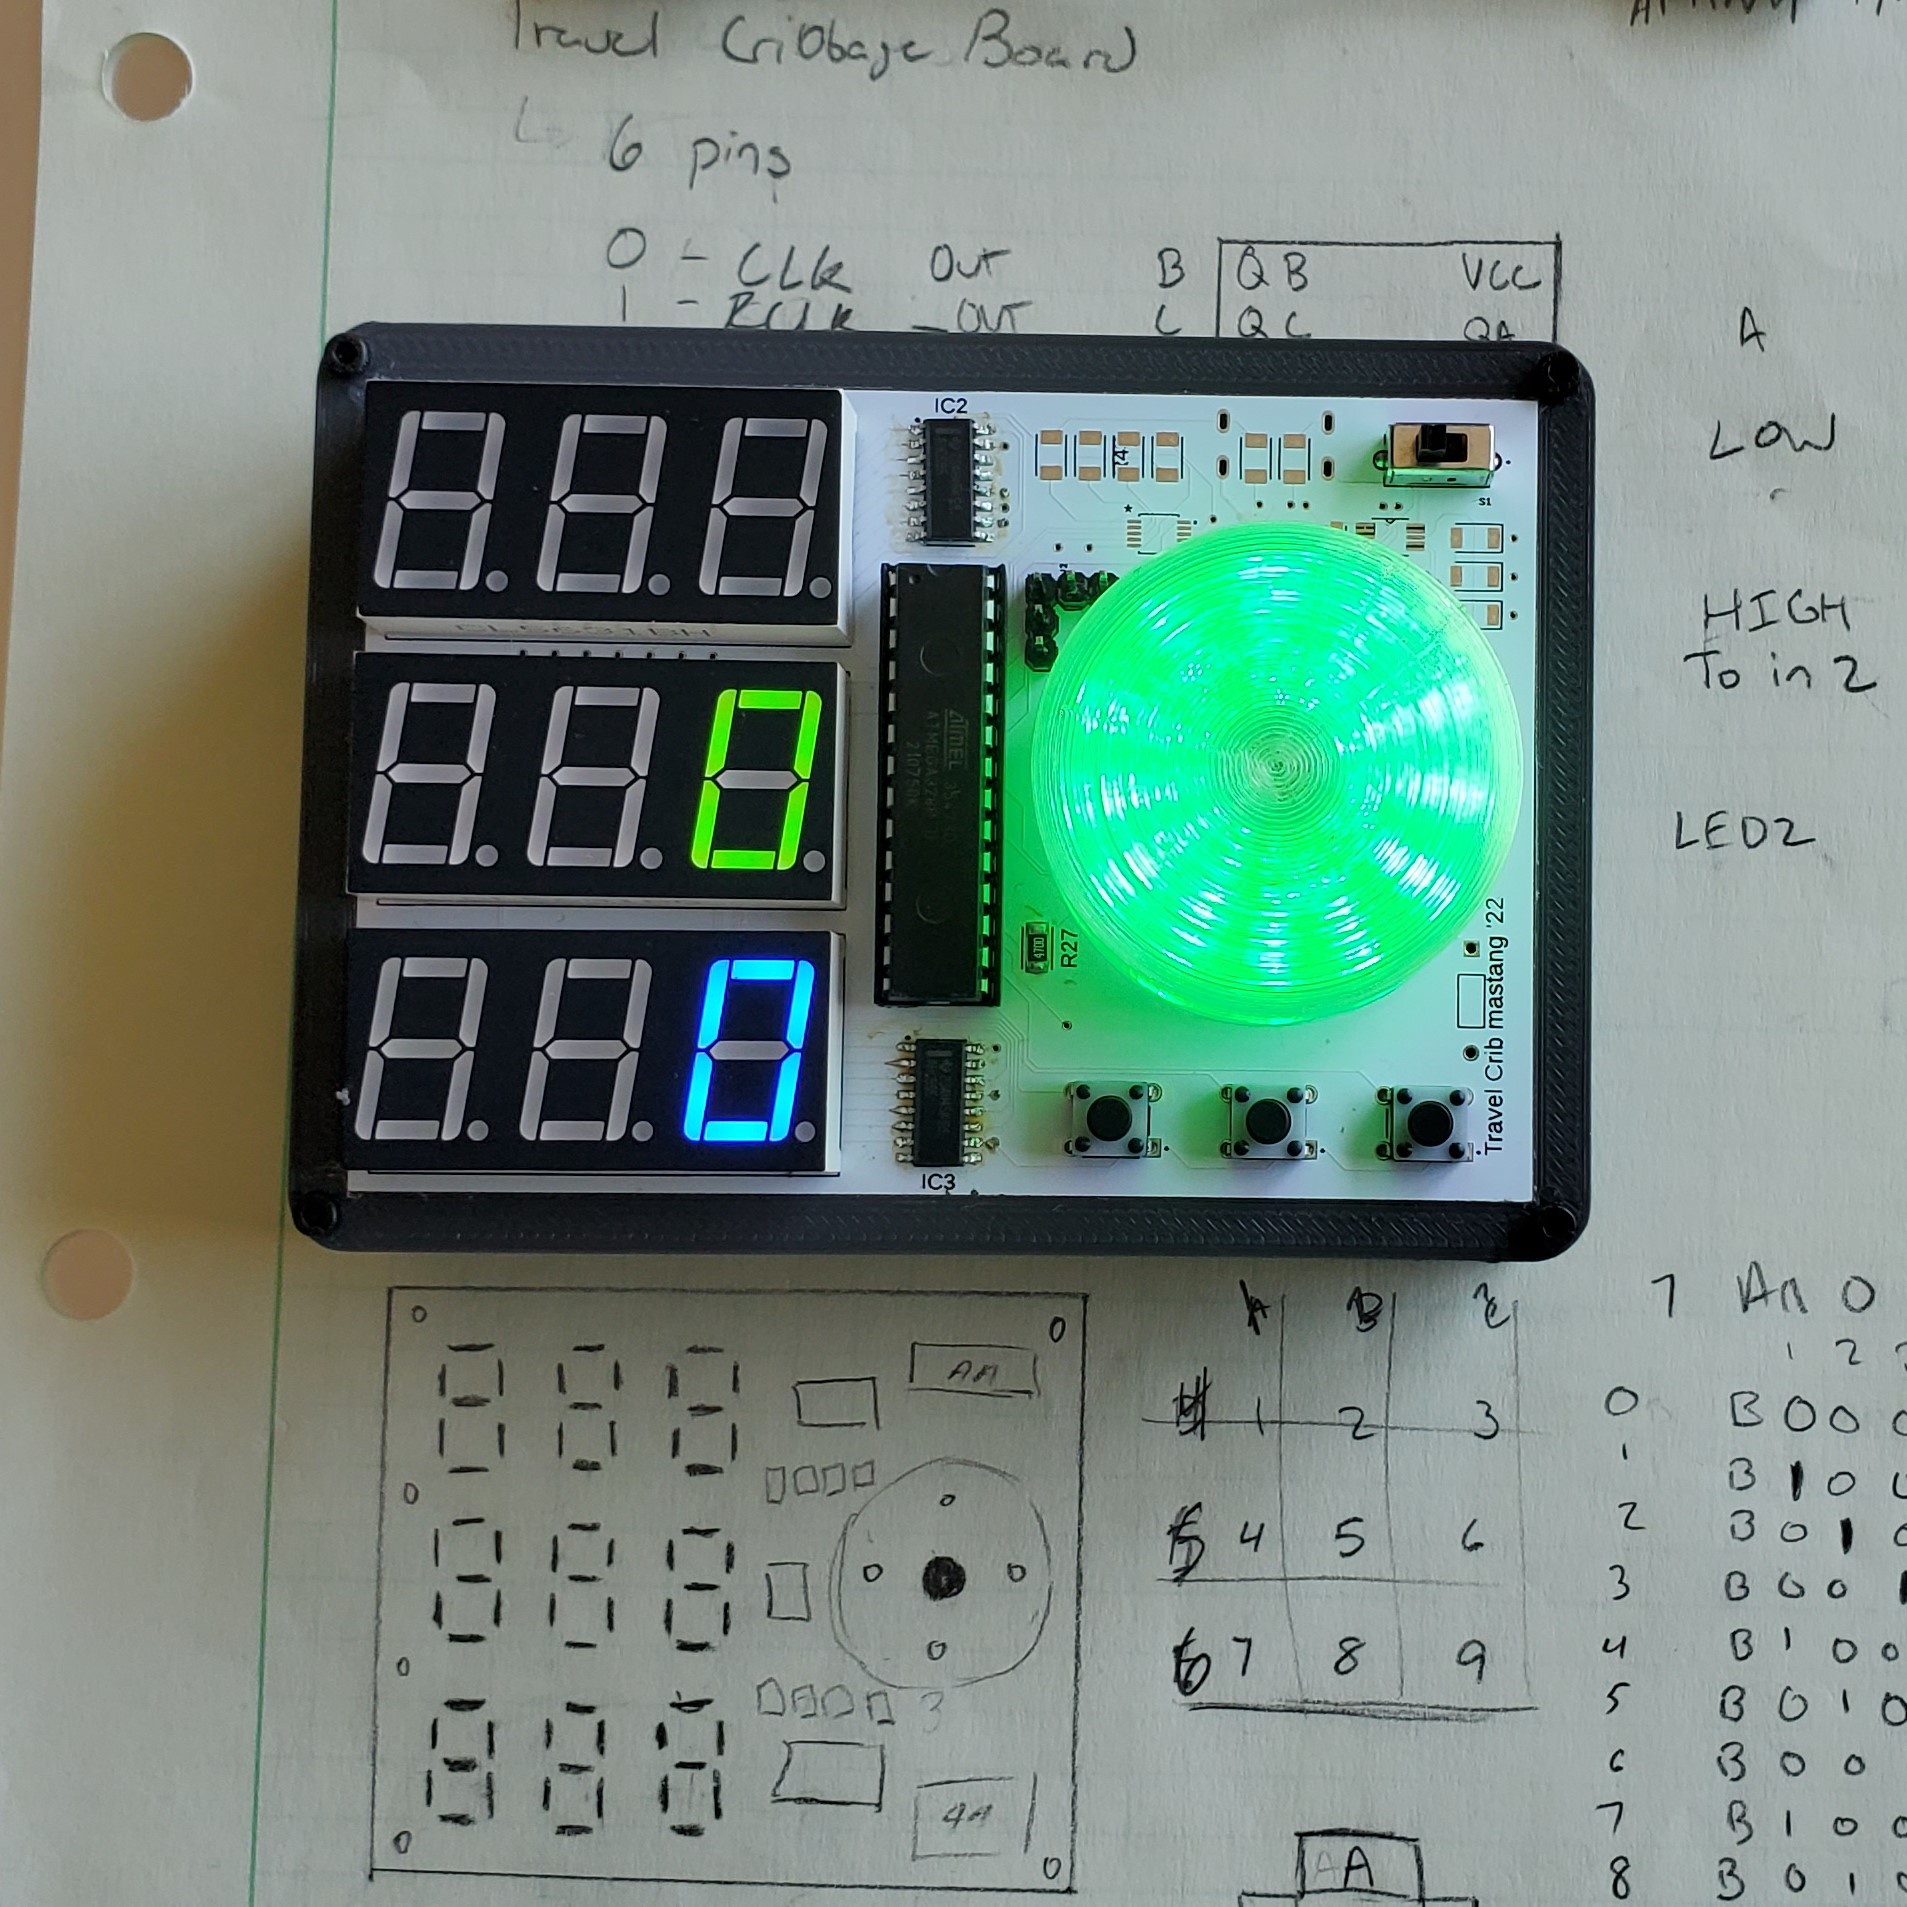 Travel Cribbage Board
6 pins
0 - CLK OUT B QB VCC
1 - RCLK - OUT C QC QA
A
LOW
HIGH
To in 2
LED2
IC2
S1
ATMEL
R27
4700
Travel Crib mastang '22
IC3
AA
4A
A B C
1 2 3
4 5 6
7 8 9
0 B 0 0
1 B 1 0
2 B 0 1
3 B 0 0
4 B 1 0 0
5 B 0 1 0
6 B 0 0
7 B 1 0 0
8 B 0 1 0
AA